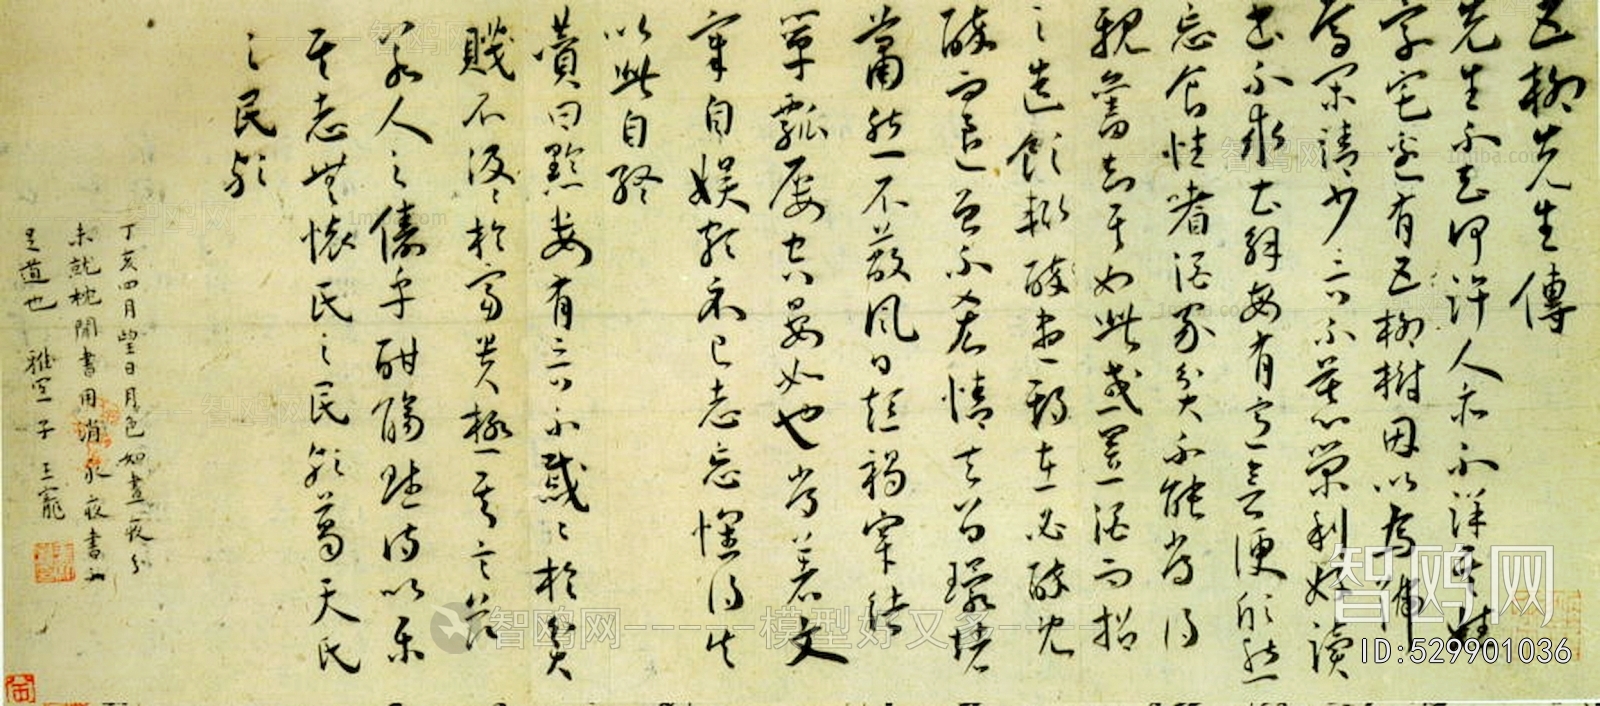 五柳先生傳
先生不知何許人亦不詳其姓
字宅邊有五柳樹因以為號
焉閑靖少言不慕榮利好讀
書不求甚解每有會意便欣然
忘食性嗜酒家貧不能常得
親舊知其如此或置酒而招
之造飲輒醉盡期在必醉既
醉而退曾不吝情去留環堵
蕭然不蔽風日短褐穿結
簞瓢屢空晏如也常著文
章自娛頗示己志忘懷得失
以此自終
贊曰黔婁有言不戚戚於貧
賤不汲汲於富貴極其言茲
若人之儔乎酣觴賦詩以樂
其志無懷氏之民歟葛天氏
之民歟
丁亥四月望日月色如晝夜分
未就枕閒書用消永夜書不
足道也 雅宜子王寵
智鸥网
ID:529901036
智鸥网-----模型好又多-----